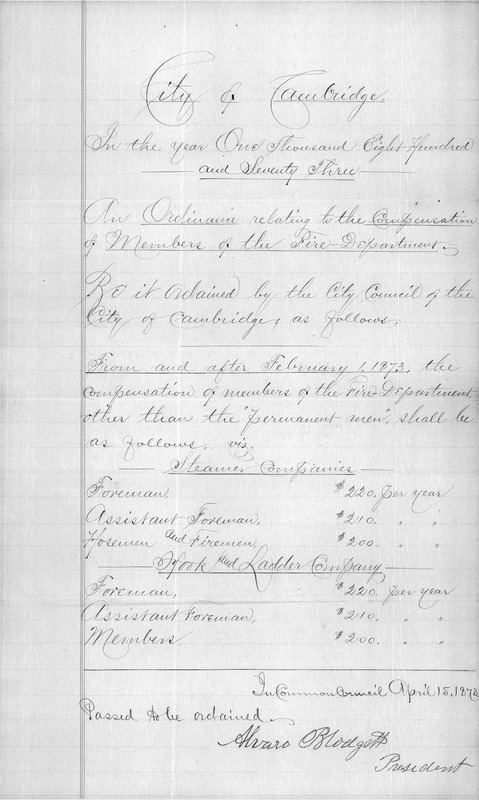 City of Cambridge.
In the year One Thousand Eight Hundred
and Seventy Three
An Ordinance relating to the Compensation
of Members of the Fire-Department.
Be it ordained by the City Council of the
City of Cambridge, as follows,
From and after February 1, 1873, the
compensation of members of the Fire-Department,
other than the "permanent men", shall be
as follows, viz.
Steamer Companies
Foreman, $220. per year
Assistant Foreman, $210. " "
Hosemen and Firemen, $200. " "
Hook and Ladder Company
Foreman, $220. per year
Assistant Foreman, $210. " "
Members $200. " "
In Common Council April 15, 1873
Passed to be ordained.
Alvaro Blodgett
President